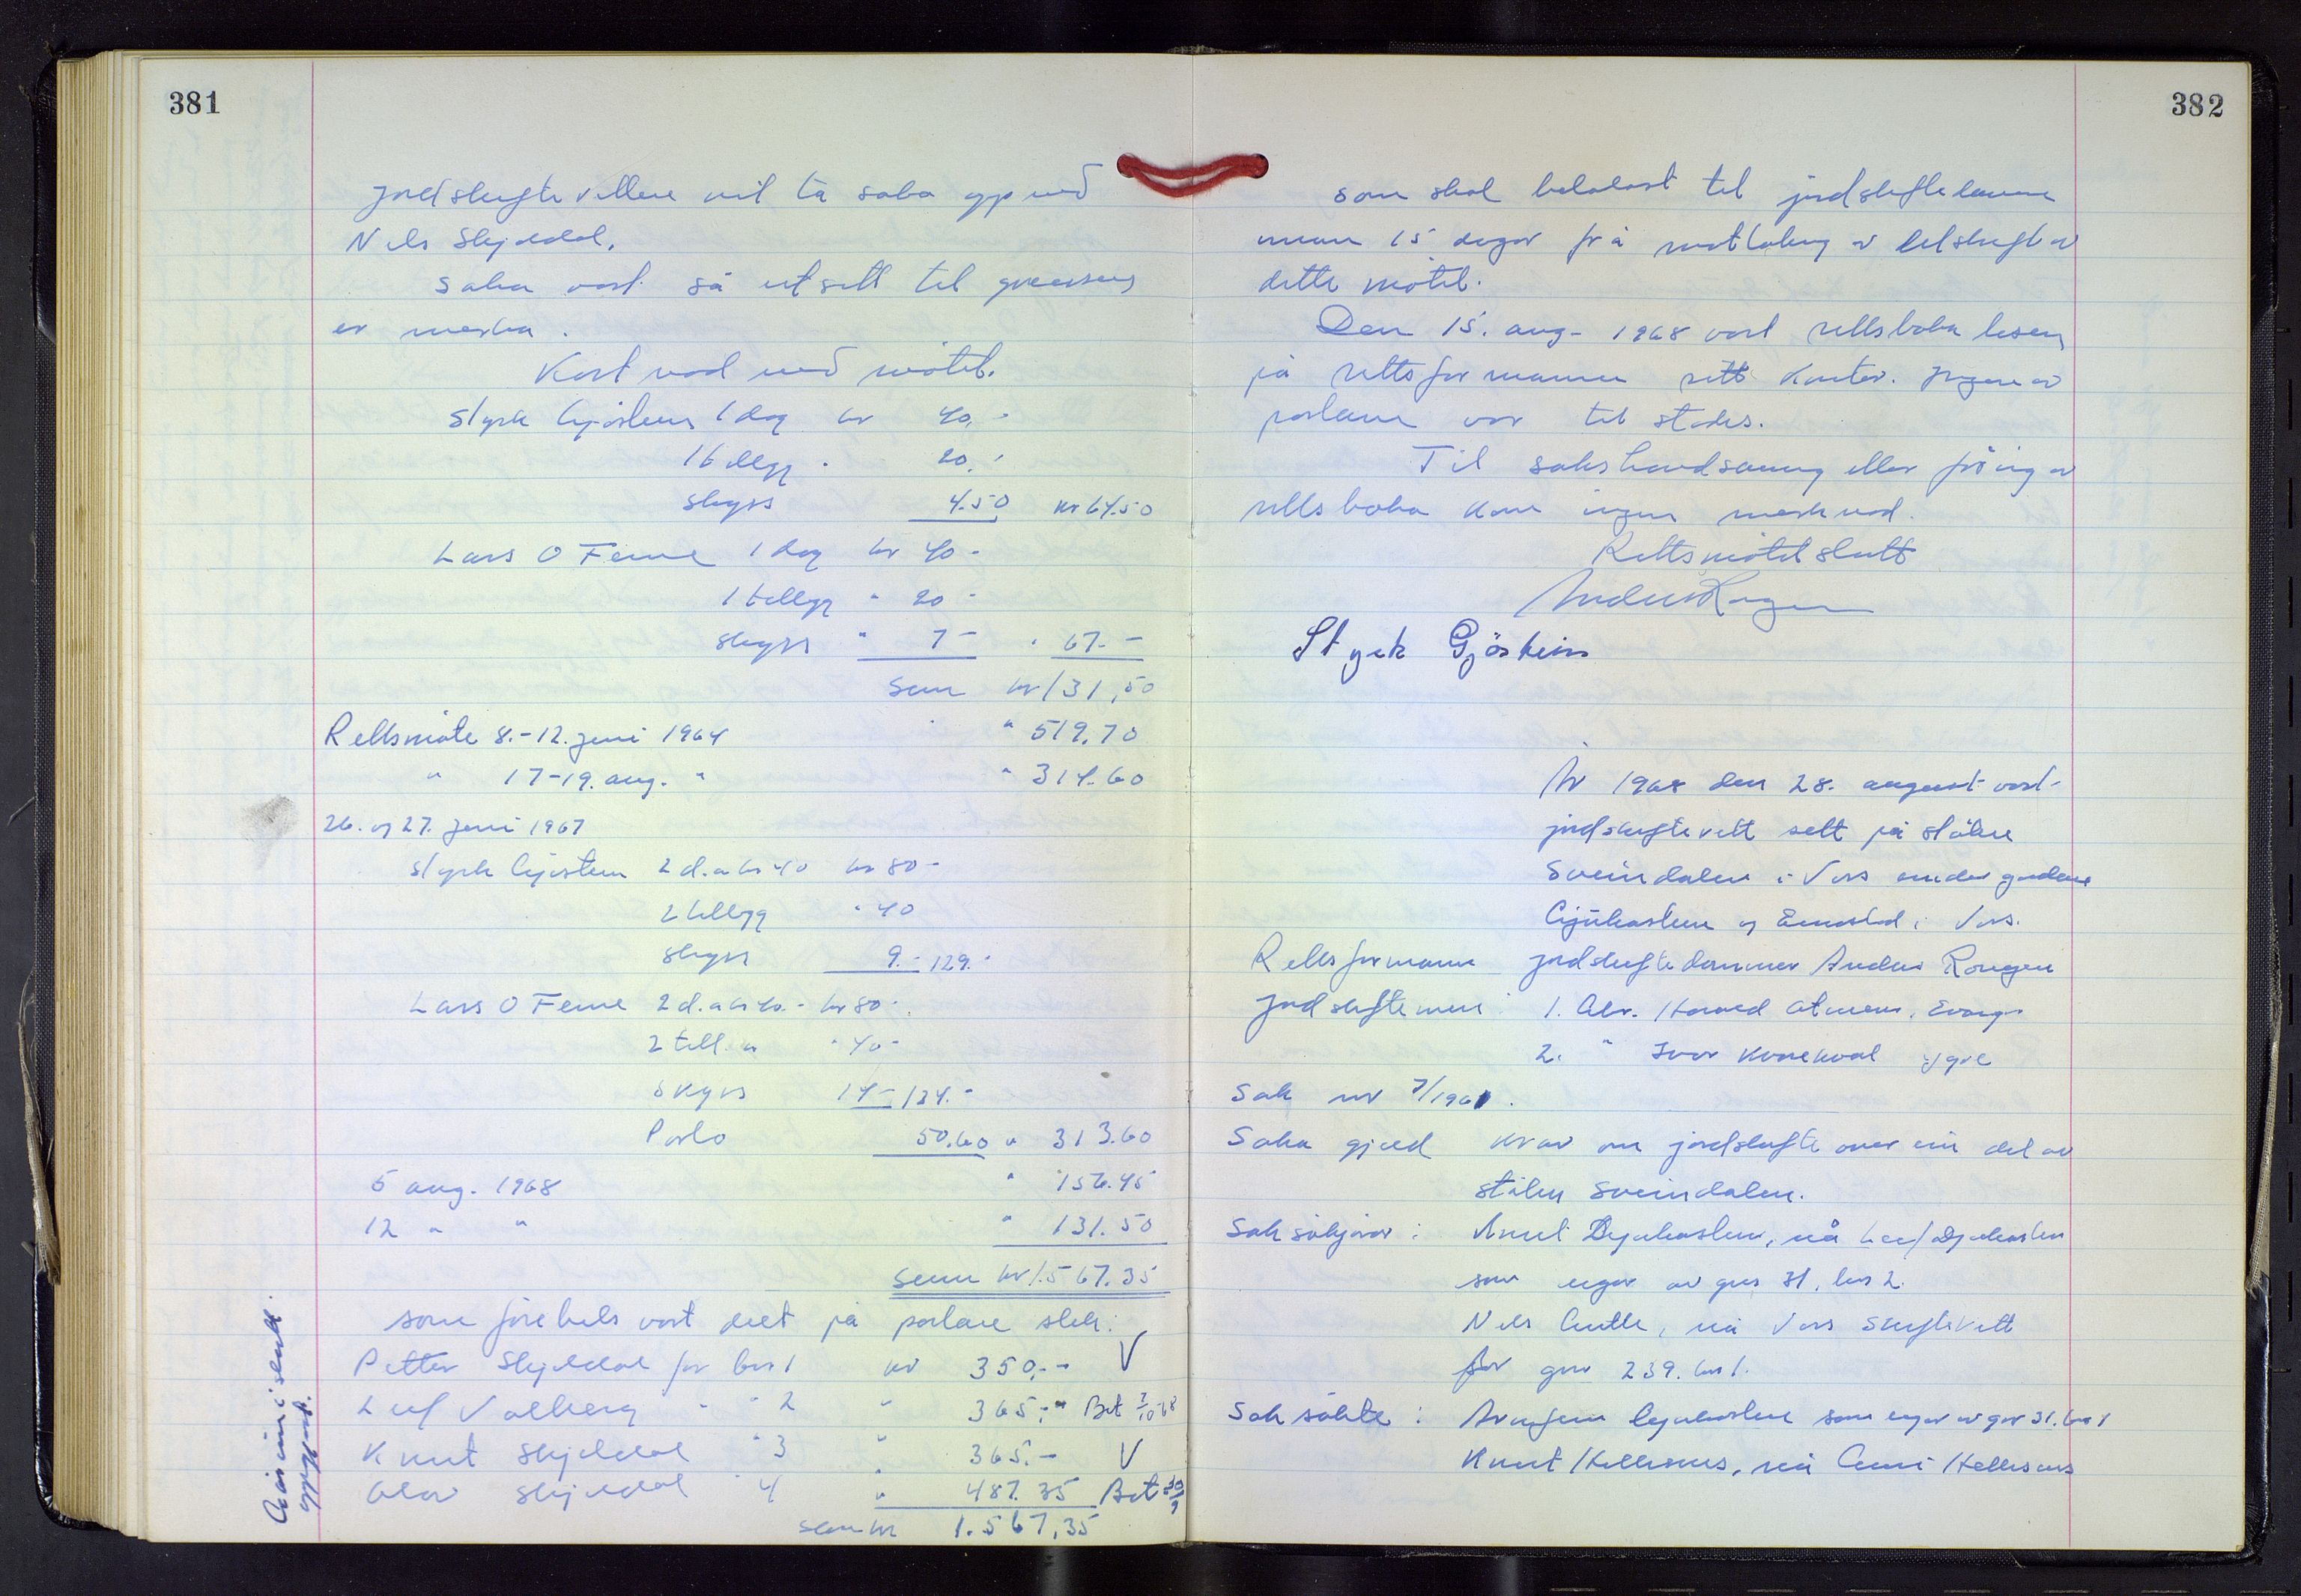 381
jordskifteretten vil ta saka opp med
Nils Skjeldal.
Saka vart så utsett til grensene
er merka.
Kostnad med møtet.
Styrk Gjøstein 1 dag kr 40,-
1 tillegg " 20,-
skyss 4.50 kr 64.50
Lars O Feme 1 dag kr 40-
1 tillegg " 20-
skyss " 7- " 67.-
Sum kr 131,50
Rettsmøte 8.-12. juni 1964 " 519,70
" 17-19. aug. " " 314.60
26. og 27. juni 1967
Styrk Gjøstein 2 d. a kr 40 kr 80-
2 tillegg " 40
skyss 9.- 129.-
Lars O Feme 2 d. a kr 40.- kr 80-
2 till. a " 40-
Skyss 14- 134.-
Porto 50.60 " 313.60
5 aug. 1968 " 156.45
12 " " " 131.50
Sum kr 1.567.35
som førebels vart delt på partane slik:
Petter Skjeldal for bnr 1 kr 350,-- V
Leif Valberg " " 2 " 365,-- Bet 7/10-68
Knut Skjeldal " 3 " 365.- V
Olav Skjeldal " 4 " 487.35 Bet 30/9
sum kr 1.567,35
oppgjort.
382
som skal betalast til jordskifte
innan 15 dagar frå mottaking av utskrift av
dette møtet.
Den 15. aug- 1968 vart rettsboka lesen
på rettsformannen sitt kontor. Ingen av
partane var til stades.
Til sakshandsaming eller føring av
rettsboka kom ingen merknad.
Rettsmøtet slutt
Anders Rongen
Styrk Gjöstein
År 1968 den 28. august vart
jordskifterett sett på stølen
Sveindalen i Voss under gardane
Gjukastein og Emstad i Voss.
Rettsformann jordskiftedommar Anders Rongen
Jordskiftemenn 1. Alv. Harald Afnens, Evanger
2. " Ivar Kvarekval Ygre
Sak nr 7/1961.
Saka gjeld krav om jordskifte over ein del av
stølen Sveindalen.
Saksøkjarar : Knut Dyukastein, nå Leif Djukastein
som eigar av gnr 31. bnr 2.
Nils Gulle, nå Voss Skifterett
for gnr 239. bnr 1.
Saksøkte : Arnfinn Gjukastein som eigar av gnr 31. bnr 1
Knut Hellesnes, nå Anni Hellesnes